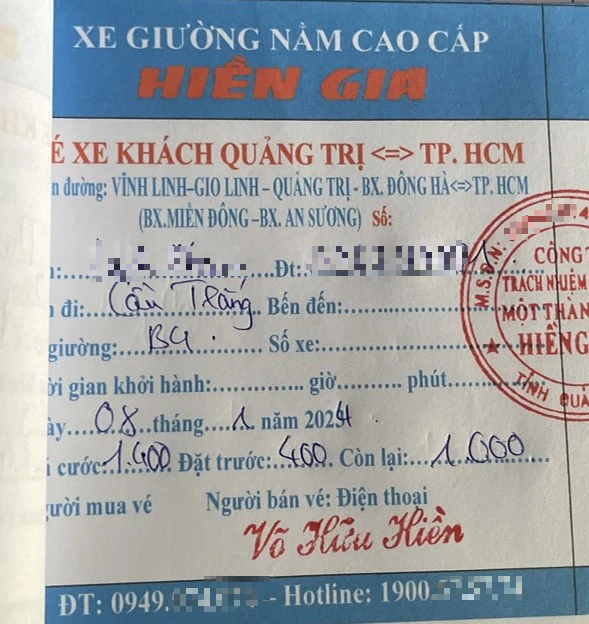 XE GIƯỜNG NẰM CAO CẤP
HIỀN GIA
É XE KHÁCH QUẢNG TRỊ <=> TP. HCM
n đường: VĨNH LINH-GIO LINH - QUẢNG TRỊ - BX. ĐÔNG HÀ<=>TP. HCM
(BX.MIỀN ĐÔNG -BX. AN SƯƠNG) Số:
:.....Đt:.....
đi: Cầu Tràng. Bến đến:......
giường:.... B4 ..... Số xe:......
ời gian khởi hành:............ giờ......... phút......
ày...08...tháng...1 năm 2024.
cước:1.400. Đặt trước: 400. Còn lại:...1.000......
ười mua vé Người bán vé: Điện thoại
Võ Hữu Hiền
ĐT: 0949. - Hotline: 1900.
M.S.D.N:
CÔNG T
TRÁCH NHIỆM
MỘT THÀN
★ HIỀNG
TỈNH QUẢ